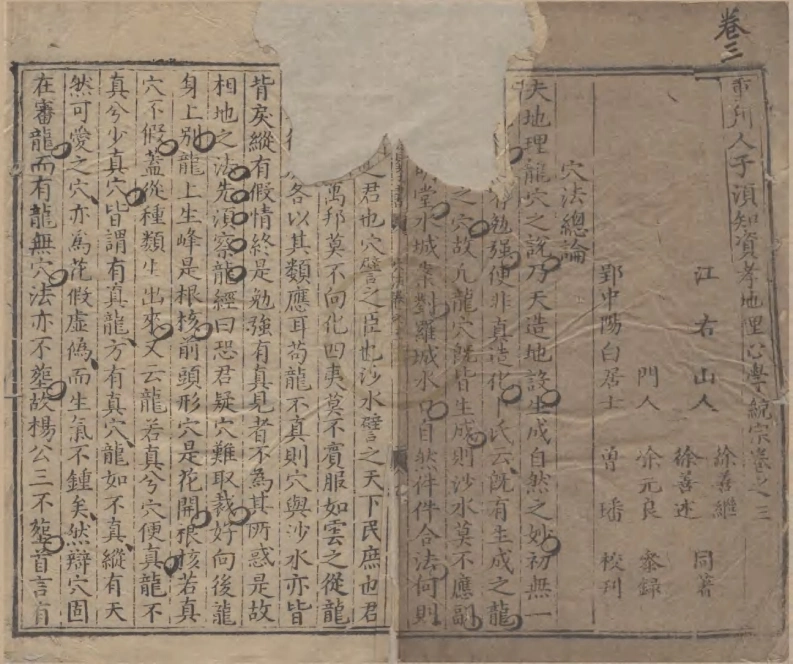 卷三
重刋人子須知資孝地理心學統宗卷之三
江右山人 徐善繼
徐善述 同著
門人 徐元良 叅録
郢中陽白居士 曾璠 校刋
穴法總論
夫地理龍穴之説乃天造地設生成自然之妙初無一
勉強便非真造化卜氏云旣有生成之龍
之穴故凢龍穴旣皆生成則沙水莫不應副
明堂水城案對羅城水口自然件件合法何則
之君也穴譬之臣也沙水譬之天下民庶也君
萬邦莫不向化四夷莫不賓服如雲之從龍
各以其類應耳苟龍不真則穴與沙水亦皆
背矣縱有假情終是勉強有真見者不為其所惑是故
相地之法先須察龍經曰恐君疑穴難取裁好向後龍
身上别龍上生峰是根核前頭形穴是花開根核若真
穴不假蓋從種類生出來又云龍若真兮穴便真龍不
真兮少真穴皆謂有真龍方有真穴龍如不真縱有天
然可愛之穴亦為花假虚偽而生氣不鍾矣然辯穴固
在審龍而有龍無穴法亦不塟故楊公三不塟首言有